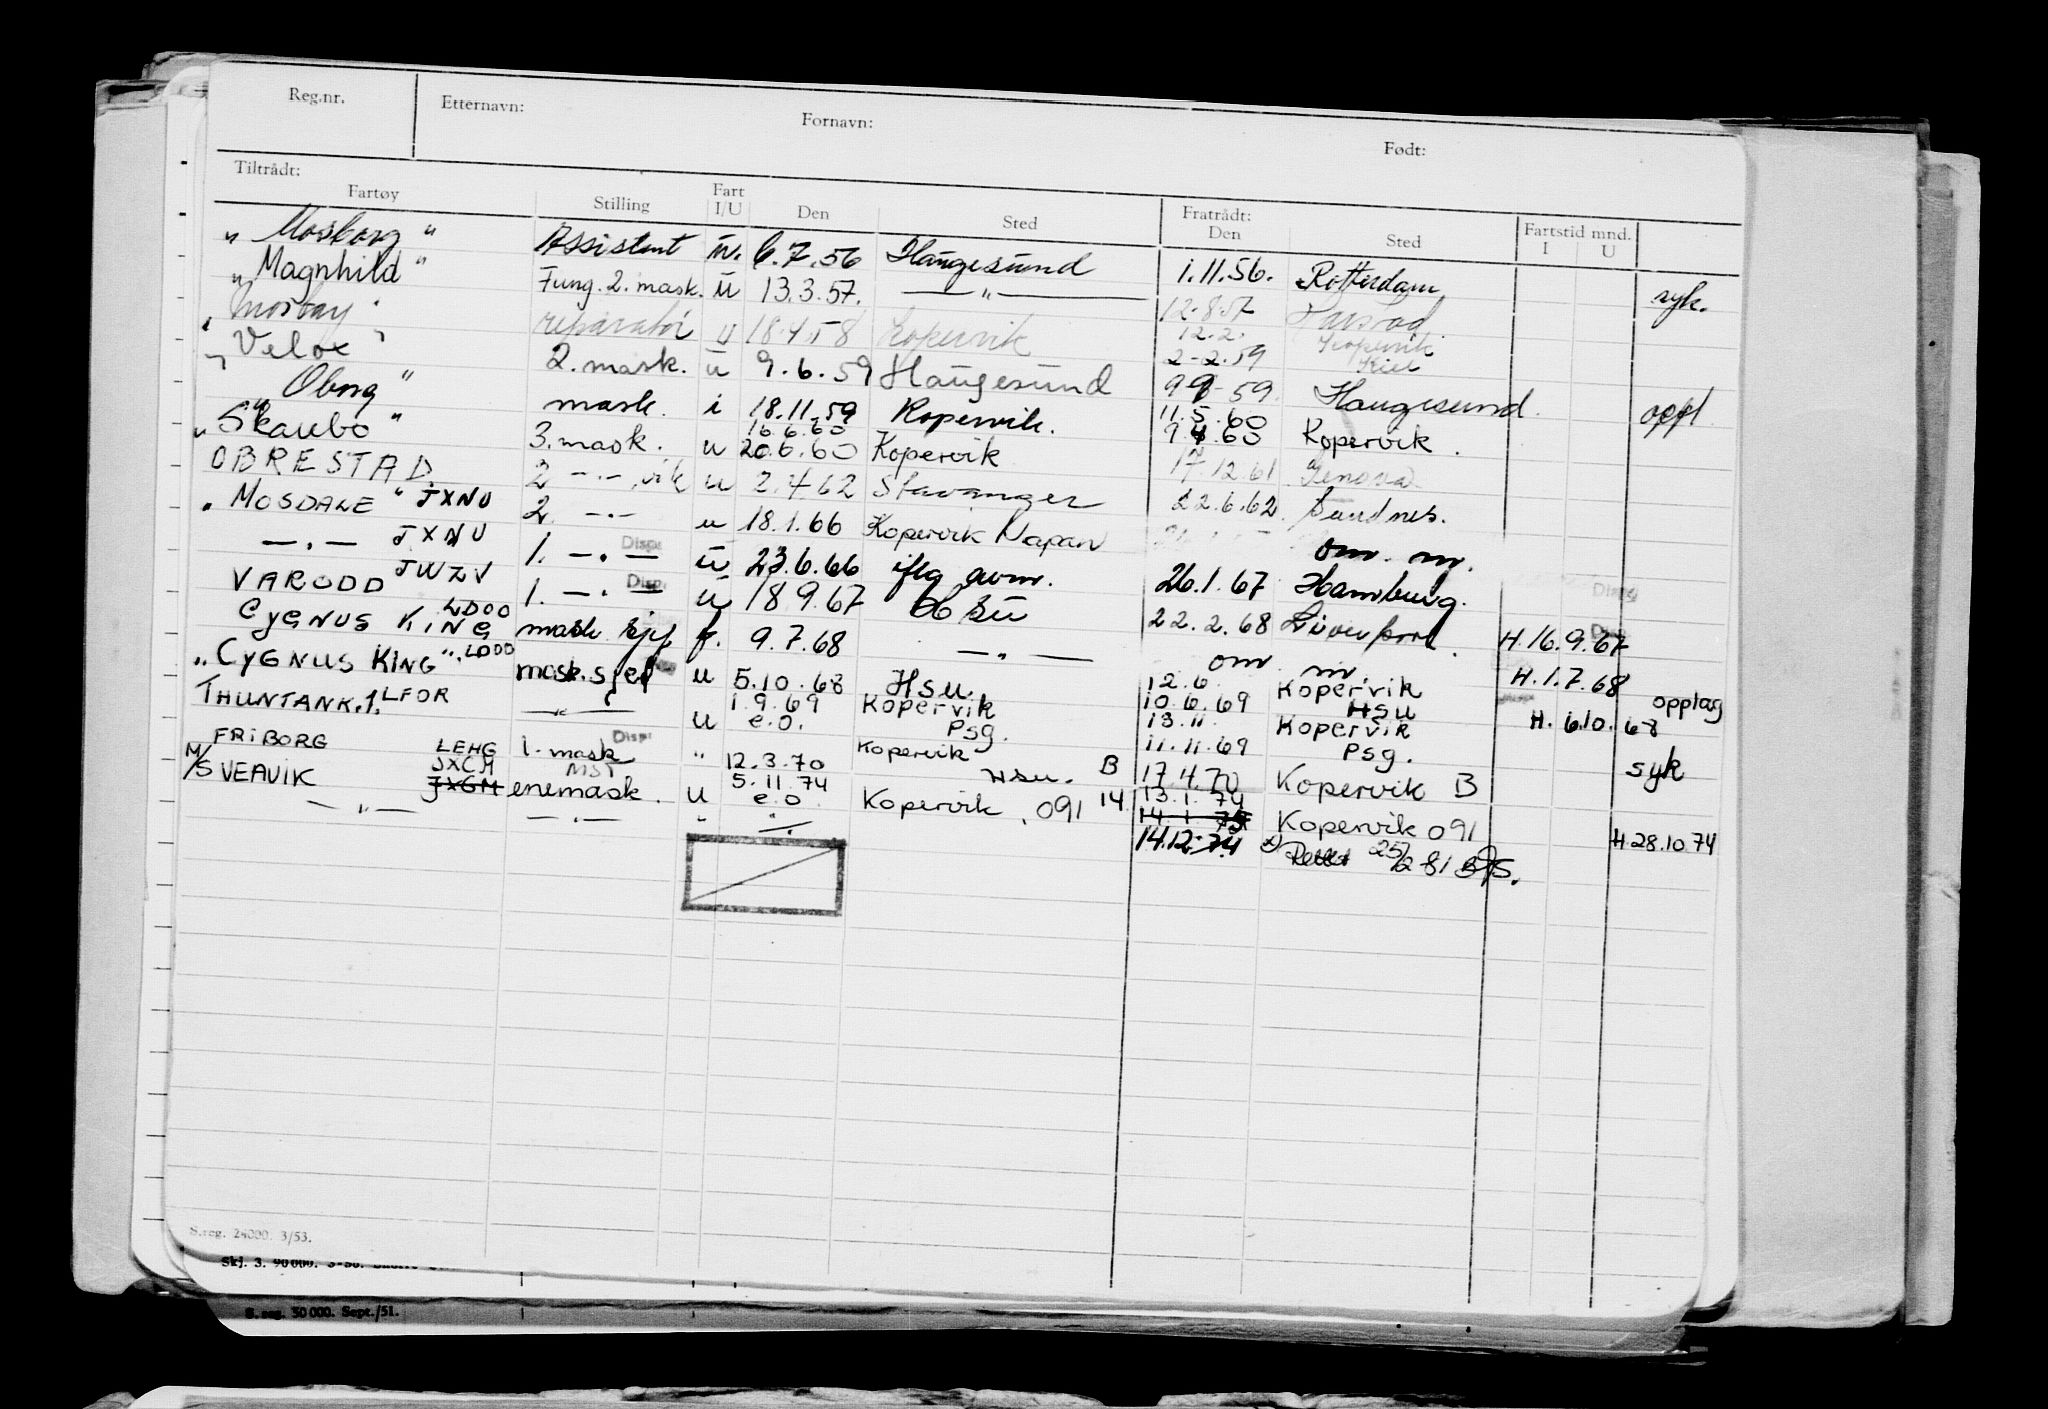 Reg.nr. Etternavn: Fornavn: Født:
Tiltrådt: Fratrådt: Fartstid mnd.
Fartøy Stilling Fart I/U Den Sted Den Sted I U
„ Mosborg “ Assistent u. 6.7.56 Haugesund 1.11.56. Rotterdam syk.
„ Magnhild “ Fung. 2. mask. u 13.3.57. — „ — 12.8.57
reparatør u 18.4.58 Kopervik 12.2. Kopervik
2-2.59 Kiel
„ Velox “ 2. mask. u 9.6.59 Haugesund 59 Haugesund. oppl.
mask. i 18.11.59 Kopervik. 11.5.60
16.6.60
„ Skaubo “ 3. mask. u 20.6.60 Kopervik 60 Kopervik.
OBRESTAD 2 — . — vik u 2.4.62 Stavanger 17.12.61 Genova
„ MOSDALE “ JXNU 2. — . — u 18.1.66 Kopervik 22.6.62 Sandnes.
— „ — JXNU 1. — „ — Disp. u 23.6.66 iflg om. m.
VARODD JWZV 1. — „ — Disp. u 18.9.67 26.1.67 Hamburg.
CYGNUS KING LDOO mask sjef f. 9.7.68 — „ — 22.2.68 Liverpool. H.16.9.67
„ CYGNUS KING “. LDOO mask.sjef u 5.10.68 Hsu. om m. H.1.7.68
12.6 Kopervik opplag
THUNTANK.1. LFOR — „ — u 1.9.69 Kopervik 10.6.69 Hsu H. 6.10.68
e.o. Psg. 13.11. Kopervik
11.11.69 Psg. syk
FRIBORG LEHG 1. mask Disp. " 12.3.70 Kopervik Hsu. B 17.4.70 Kopervik B
M/S VEAVIK JXCM JXGM MST enemask. u 5.11.74 e.o. Kopervik, 091 14 13.1.74 Kopervik 091 H.28.10.74
— „ — — „ — " 14.1.75
14.12.74 x) Rettet 25/2 81
S.reg. 24000. 3/53.
Skj. 3. 90000. 3-50.
S. reg. 50 000. Sept./51.